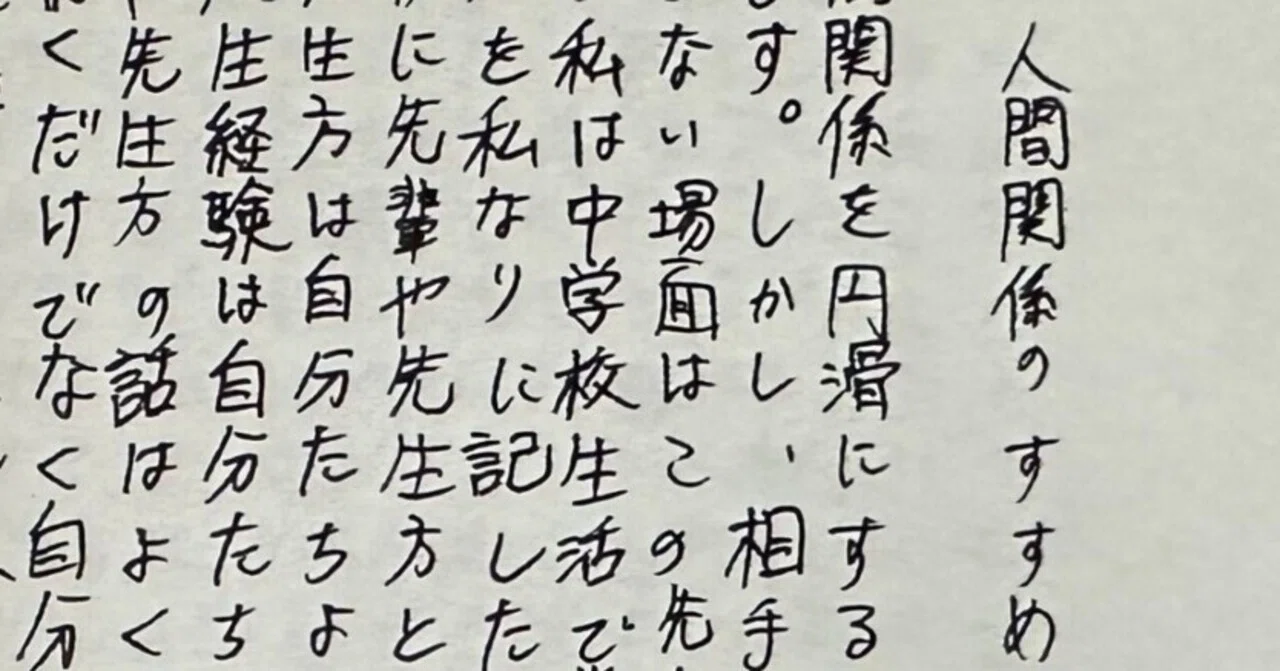 人間関係のすすめ
関係を円滑にする
す。しかし、相手
ない場面はこの先
私は中学校生活で
を私なりに記した
に先輩や先生方と
生方は自分たちよ
生経験は自分たち
先生方の話はよく
くだけでなく自分